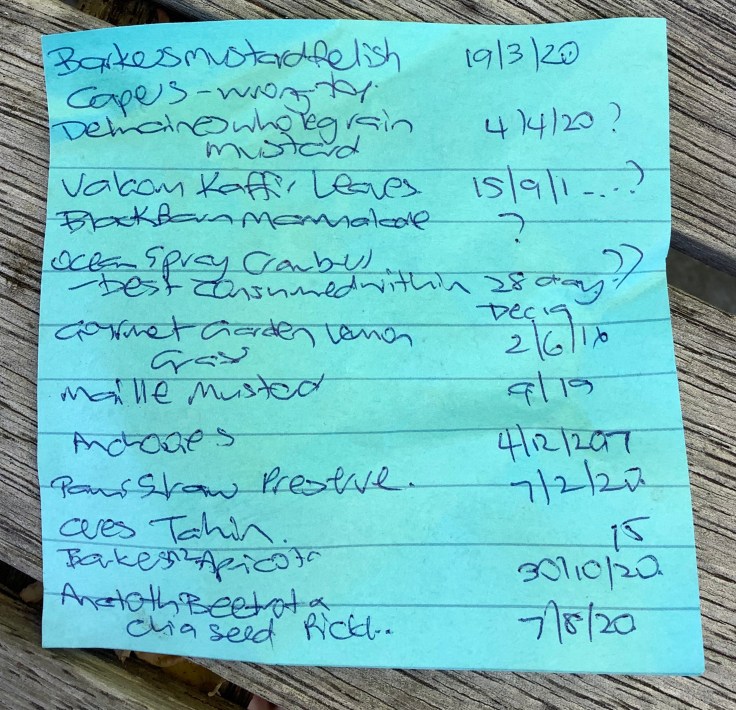 Barkers mustard Relish 19/3/20
Capers - wrong
Delmaines wholegrain 4/4/20 ?
mustard
Valcom Kaffir Leaves 15/9/1-...?
Black Barn Marmalade ?
Ocean Spray ??
- best consumed within 28 day
Dec 19
Gourmet Garden Lemon 2/6/18
Gras
Maille Mustard 9/19
4/12/2017
Pams Straw Preserve. 7/2/20.
Ceres Tahin. 15
Barkers Apricots 30/10/20.
Anathoth Beetroot &
chia seed Pickl.. 7/8/20